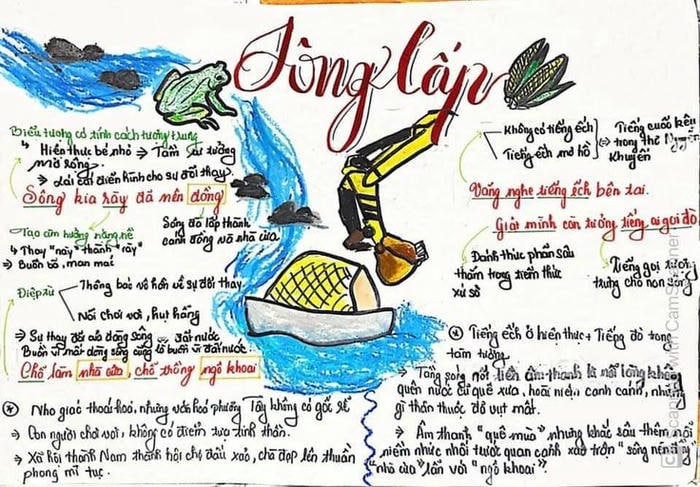 Sông Lấp
Biểu tượng có tính cách tượng trưng
↳ Hiện thực bé nhỏ ⇒ Tầm tư tưởng
mở rộng.
⇒ Lai cái điển hình cho sự đổi thay.
Sông kia rày đã nên đồng
Tạo cảm hưởng nặng nề
↳ Thay "nay" thành "rày"
⇒ Buồn bã, man mác
Sông đã lấp thành
cánh đồng và nhà cửa
Điệp từ
Thông báo về hồn về sự đổi thay
Nỗi chơi vơi, hụt hẫng
⇒ Sự thay đổi của dòng sông đất nước
Buồn vì mất dòng sông cũng là buồn vì đất nước.
Chỗ làm nhà cửa, chỗ trồng ngô khoai
* Nho giáo thoái hoá, nhưng văn hoá phương Tây không có gốc rễ
⇒ Con người chơi vơi, không có điểm tựa tinh thần.
⇒ Xã hội thành Nam thành hội chợ đầu xảo, chà đạp lên thuần
phong mĩ tục.
Không có tiếng ếch
Tiếng ếch mơ hồ
⇔ Tiếng cuốc kêu
trong thơ Nguyễn
Khuyến
Vẳng nghe tiếng ếch bên tai.
Giật mình còn tưởng tiếng ai gọi đò
Đánh thức phần sâu
thẳm trong tiềm thức
xứ sở
Tiếng gọi tượng
trưng cho non sông
* Tiếng ếch ở hiện thực + Tiếng đò trong
tâm tưởng.
⇒ Tầng sâu nội liên âm thanh là nỗi lòng không
quên nước cũ quê xưa, hoài niệm canh cánh, những
gì thân thuộc đã vụt mất.
⇒ Âm thanh "quê mùa" nhưng khắc sâu thêm nỗi
niềm nhức nhối trước quang cảnh xáo trộn "sông nên đồng"
"nhà cửa" lẫn với "ngô khoai"
Scanned with CamScanner